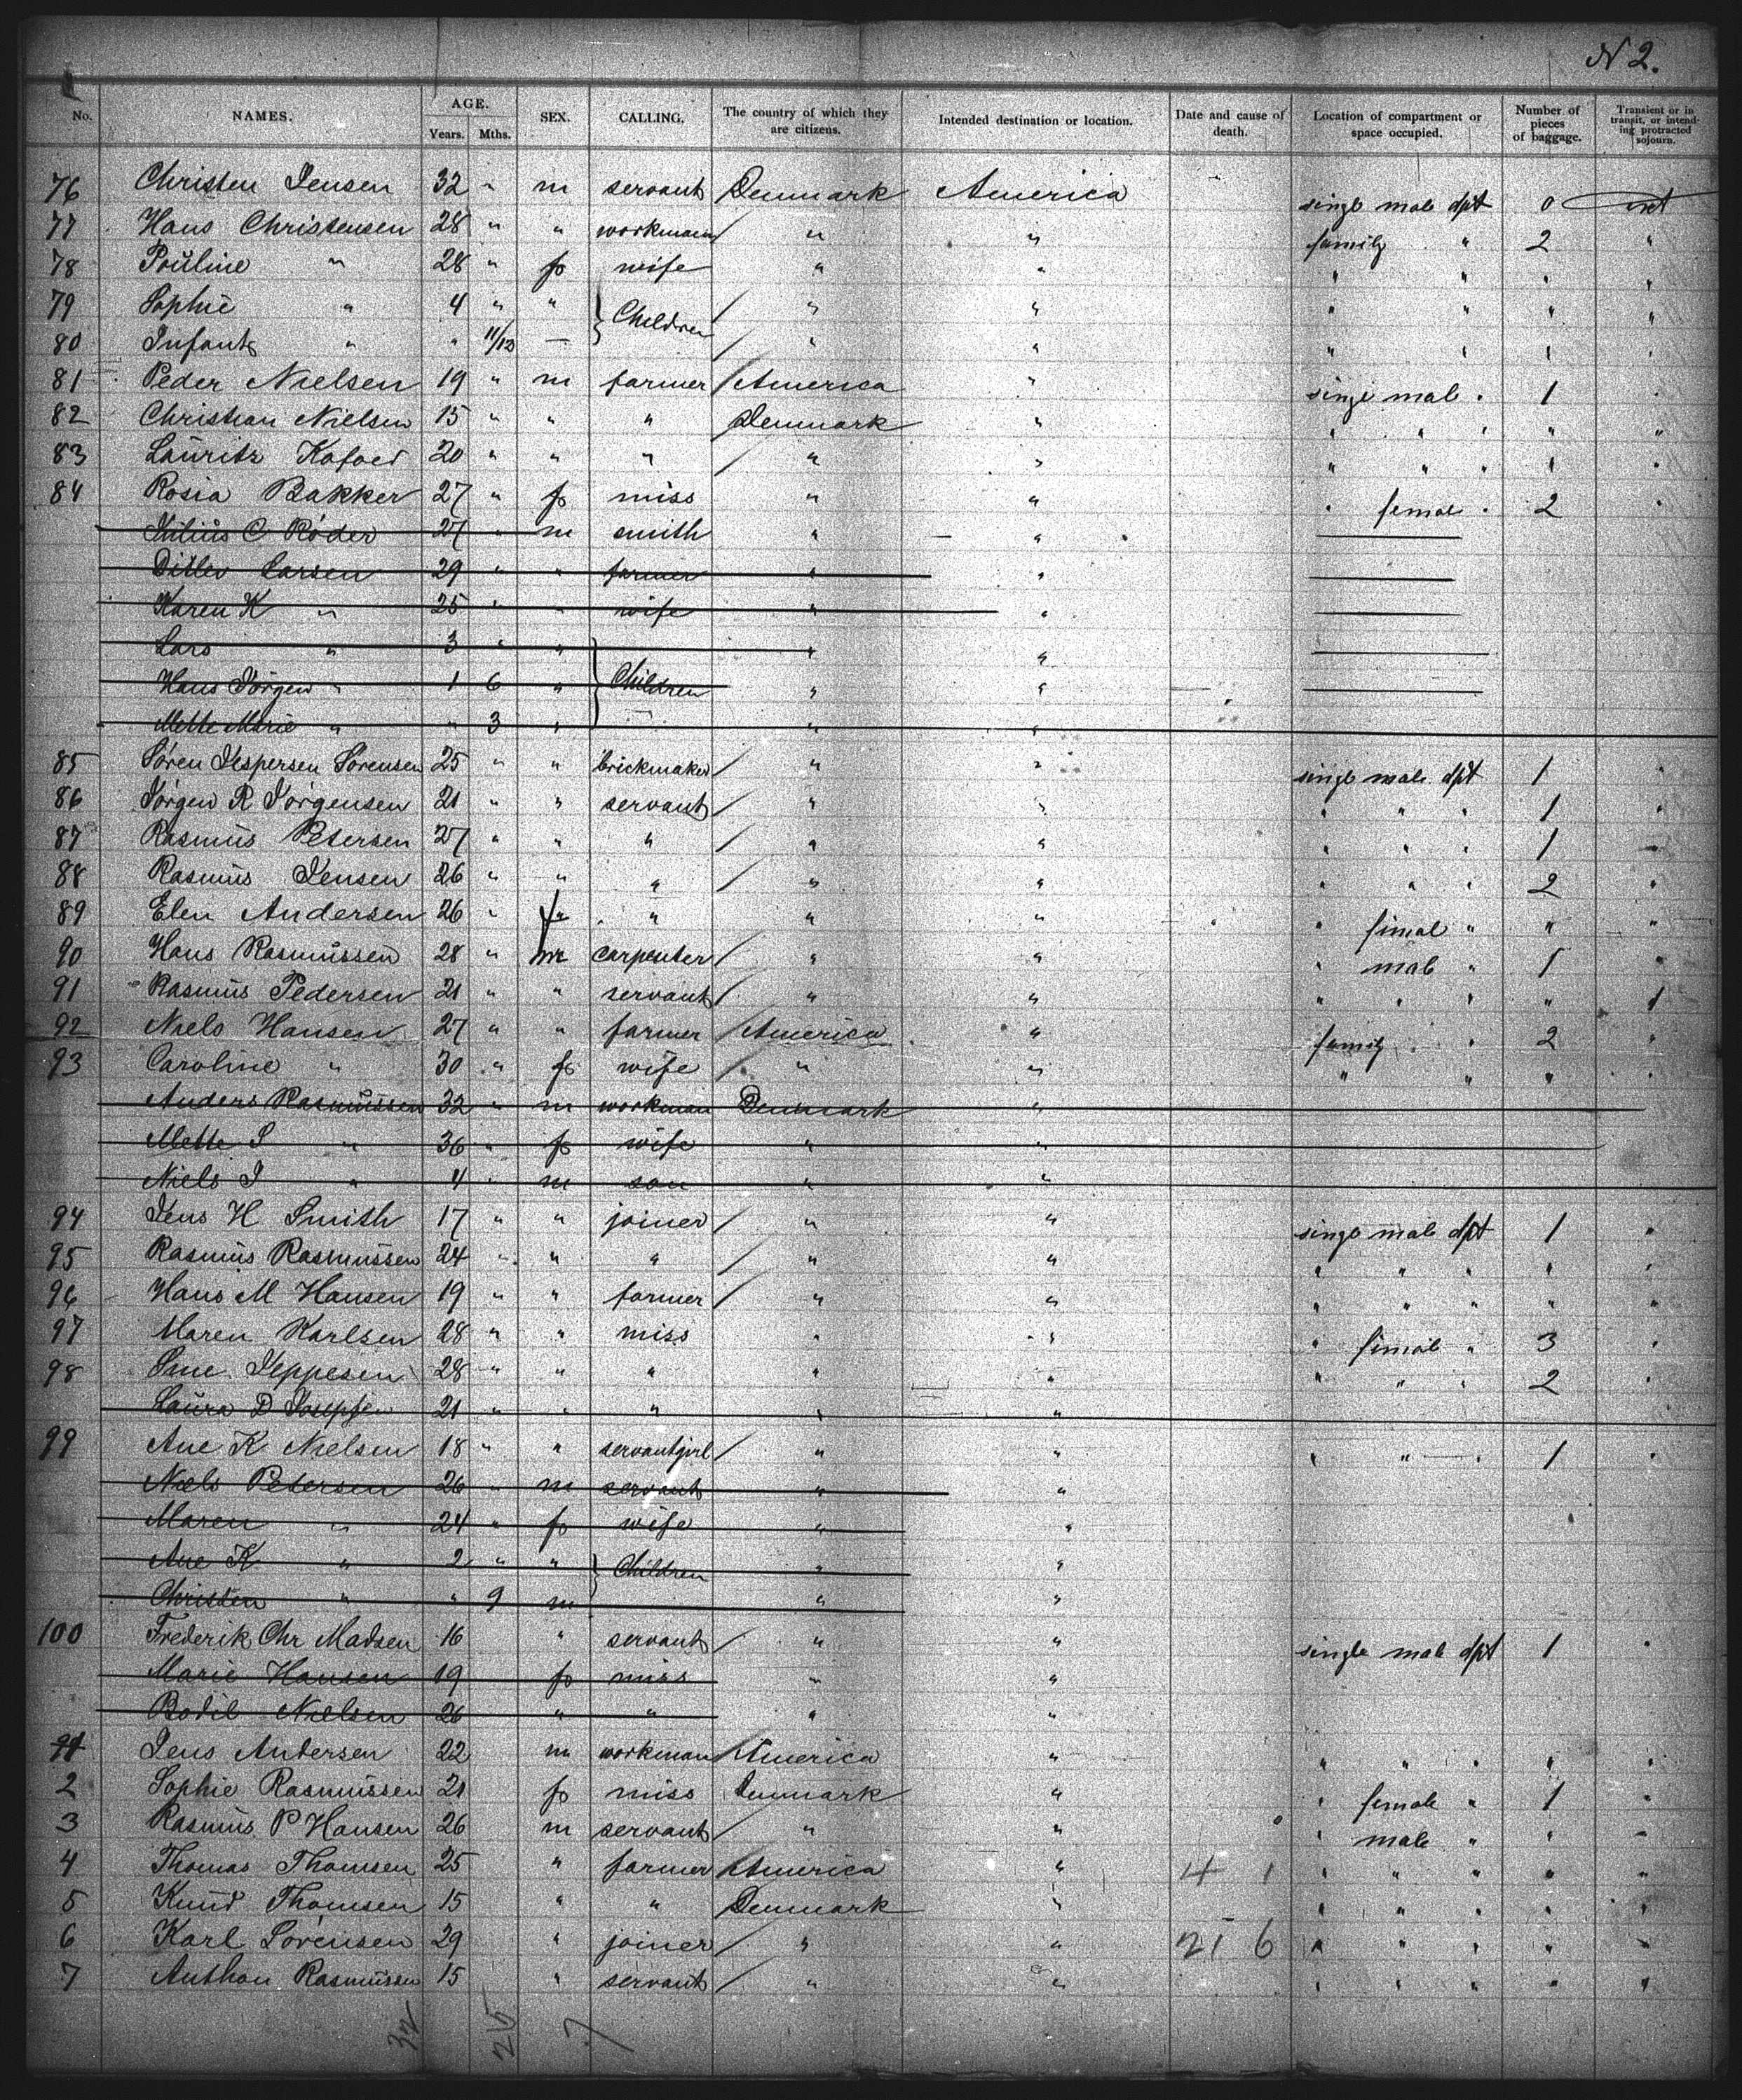 N 2.
No. NAMES. AGE. Years. Mths. SEX. CALLING. The country of which they are citizens. Intended destination or location. Date and cause of death. Location of compartment or space occupied. Number of pieces of baggage. Transient or in transit, or intending protracted sojourn.
76 Christen Jensen 32 " m servant Denmark America single male dpt 0
77 Hans Christensen 28 " " workman / " " family " 2 "
78 Pouline " 28 " f wife " " " " " "
79 Sophie " 4 " " } Children / " " " " " "
80 Infant " " 11/12 — / " " " " " "
81 Peder Nielsen 19 " m farmer / America " single male " 1 "
82 Christian Nielsen 15 " " " Denmark " " " " " "
83 Lauritz Kofoed 20 " " " / " " " " " 1 "
84 Rosia Bakker 27 " f miss " " " female " 2 "
Julius C Röder 27 " m smith " "
Ditlev Larsen 29 " " farmer " "
Karen K " 25 " " wife " "
Lars " 3 " " } " "
Hans Jörgen " 1 6 " } Children " "
Mette Marie " " 3 " " "
85 Sören Jespersen Sörensen 25 " " brickmaker / " " single male dpt 1 "
86 Jörgen R Jörgensen 21 " " servant / " " " " " 1 "
87 Rasmus Petersen 27 " " " / " " " " " 1 "
88 Rasmus Jensen 26 " " " / " " " " " 2 "
89 Elen Andersen 26 " f " " " " female " " "
90 Hans Rasmussen 28 " m carpenter / " " " male " 1 "
91 Rasmus Pedersen 21 " " servant / " " " " " " "
92 Niels Hansen 27 " " farmer / America " family " 2 "
93 Caroline " 30 " f wife " " " " " "
Anders Rasmussen 32 " m workman Denmark "
Mette S " 36 " f wife " "
Niels J " 4 " m son " "
94 Jens H Smith 17 " " joiner / " " single male dpt 1 "
95 Rasmus Rasmussen 24 " " " / " " " " " " "
96 Hans M Hansen 19 " " farmer / " " " " " " "
97 Maren Karlsen 28 " " miss " " " female " 3 "
98 Sine Jeppesen 28 " " " " " " " " 2 "
Laura D 21 " " " " "
99 Ane K Nielsen 18 " " servantgirl / " " " " " 1 "
Niels Petersen 26 " m servant " "
Maren " 24 " f wife " "
Ane K " 2 " " } Children " "
Christen " " 9 m " "
100 Frederik Chr Madsen 16 " servant / " " single male dpt 1 "
Marie Hansen 19 f miss " "
Bodil Nielsen 26 " " " "
Jens Andersen 22 m workman / America " " " " " "
2 Sophie Rasmussen 21 f miss Denmark " " female " 1 "
3 Rasmus P Hansen 26 m servant / " " " male " " "
4 Thomas Thomsen 25 " farmer / America " 4 1 " " " " "
5 Knud Thomsen 15 " " Denmark " " " " " "
6 Karl Sörensen 29 " joiner / " " 21 6 " " " " "
7 Anthon Rasmussen 15 " servant / " " " " " " "
32 25 7